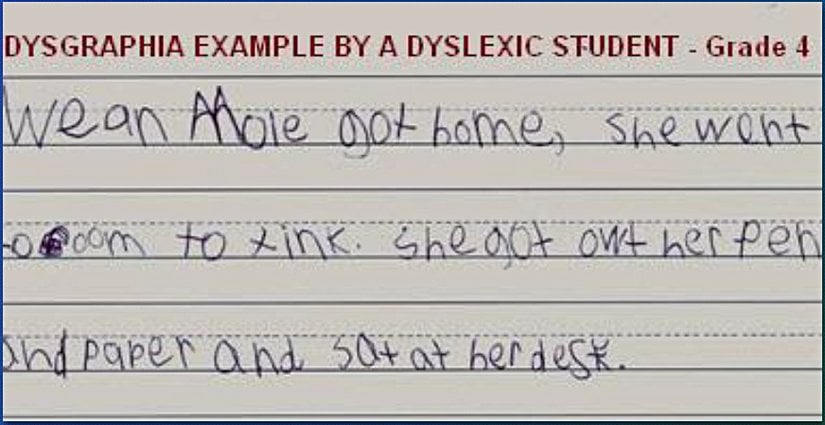 DYSGRAPHIA EXAMPLE BY A DYSLEXIC STUDENT - Grade 4
Wean Mole got home, she went
to room to tink. she got out her pen
and paper and sat at her desk.